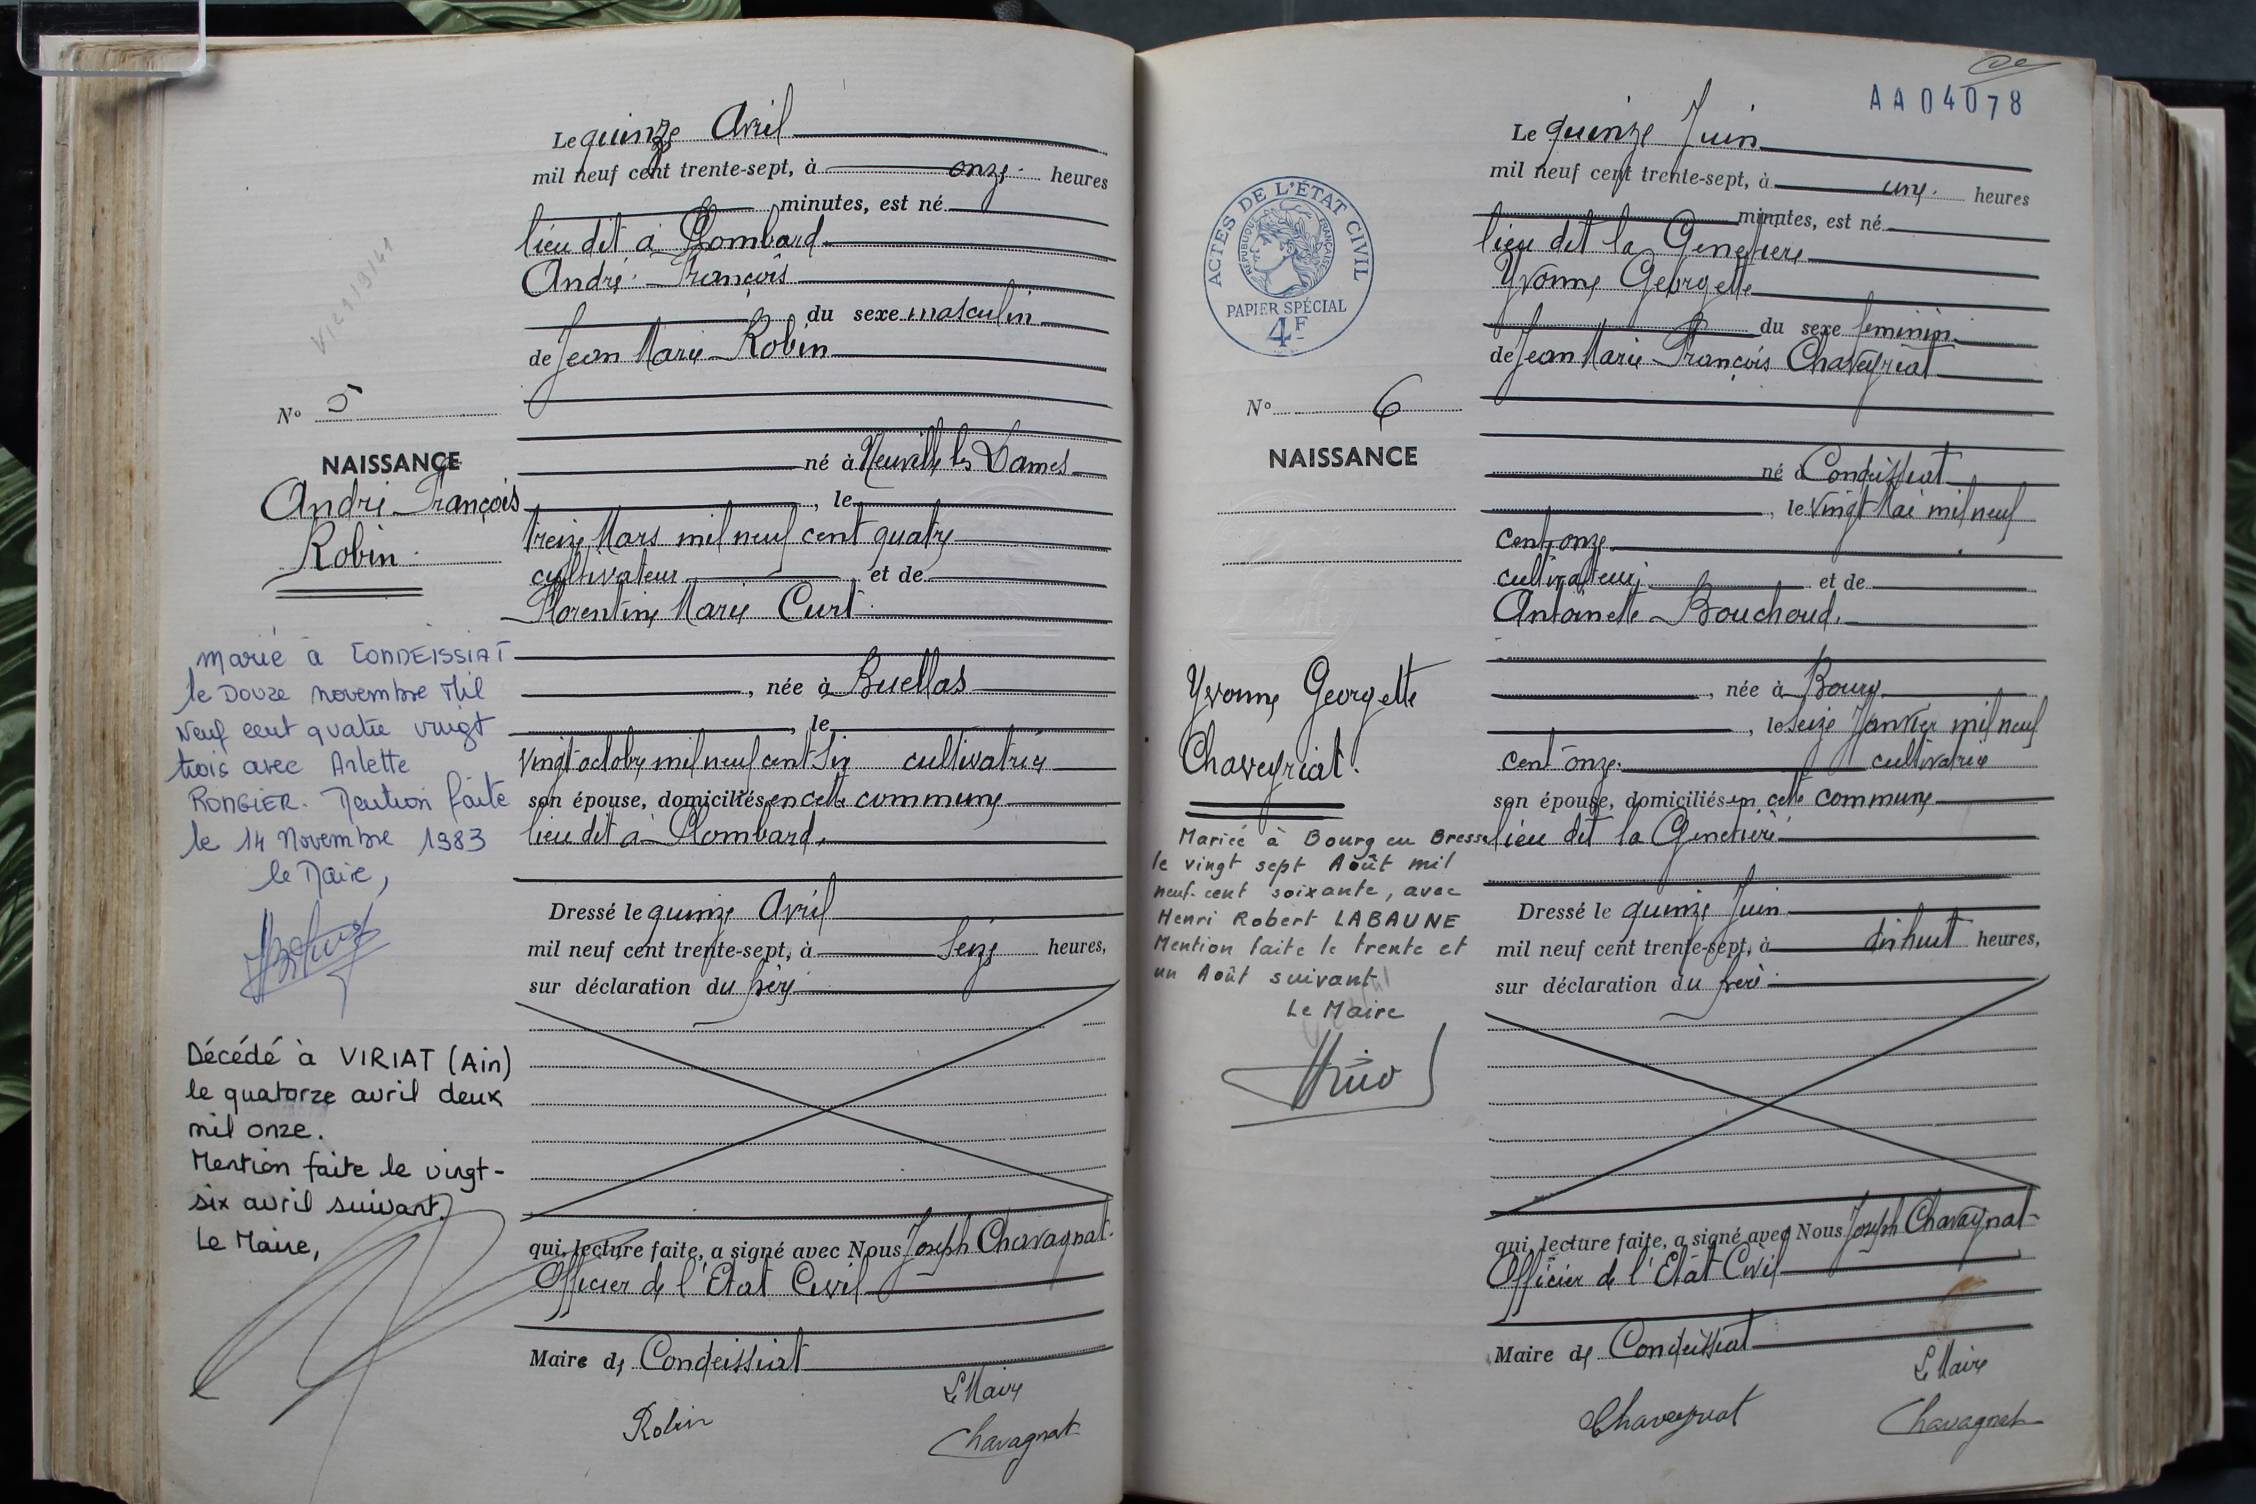 Le quinze Avril
mil neuf cent trente-sept, à onze heures
minutes, est né
lieu dit à Plombard
André François
du sexe masculin
de Jean Marie Robin
N° 5
NAISSANCE
André François
Robin
né à Neuville les Dames
, le
treize Mars mil neuf cent quatre
cultivateur et de
Florentine Marie Curt
, née à Buellas
, le
vingt octobre mil neuf cent six cultivatrice
son épouse, domiciliés en cette commune
lieu dit à Plombard.
Dressé le quinze Avril
mil neuf cent trente-sept, à seize heures,
sur déclaration du père
qui, lecture faite, a signé avec Nous Joseph Chavagnat
Officier de l'Etat Civil
Maire de Condeissiat
Le Maire
Robin
Chavagnat
marié à CONDEISSIAT
le Douze novembre Mil
Neuf cent quatre vingt
trois avec Arlette
RONGIER. Mention faite
le 14 Novembre 1983
le Maire,
Décédé à VIRIAT (Ain)
le quatorze avril deux
mil onze.
Mention faite le vingt-
six avril suivant.
Le Maire,
AA04078
Le quinze Juin
mil neuf cent trente-sept, à une heures
minutes, est né
lieu dit la Genetière
Yvonne Georgette
du sexe feminin
de Jean Marie François Chaveyriat
ACTES DE L'ÉTAT CIVIL
RÉPUBLIQUE FRANÇAISE
PAPIER SPÉCIAL
4F
N° 6
NAISSANCE
né à Condeissiat
, le Vingt Mai mil neuf
cent onze
cultivateur et de
Antoinette Bouchoud.
, née à Bourg
, le seize Janvier mil neuf
cent onze. cultivatrice
son épouse, domiciliés en cette commune
lieu dit la Genetière
Dressé le quinze Juin
mil neuf cent trente-sept, à dix huit heures,
sur déclaration du père
qui, lecture faite, a signé avec Nous Joseph Chavagnat
Officier de l'Etat Civil
Maire de Condeissiat
Le Maire
Chaveyriat
Chavagnat
Yvonne Georgette
Chaveyriat.
Mariée à Bourg en Bresse
le vingt sept Août mil
neuf-cent soixante, avec
Henri Robert LABAUNE
Mention faite le trente et
un Août suivant
Le Maire